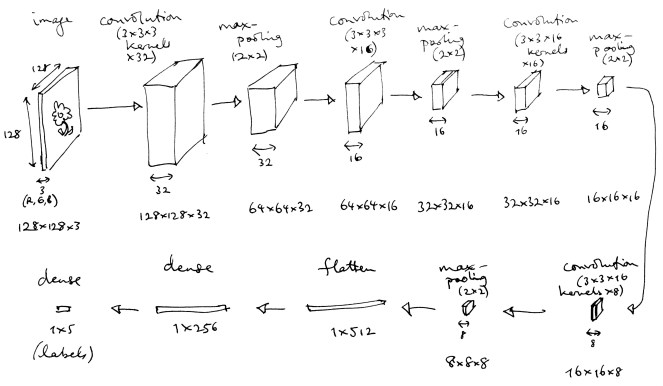 image
convolution
(3×3×3
kernels
×32)
max-
pooling
(2×2)
convolution
(3×3×3
×16)
max-
pooling
(2×2)
convolution
(3×3×16
kernels
×16)
max-
pooling
(2×2)
128
128
3
(R,G,B)
32
32
16
16
16
16
128×128×3
128×128×32
64×64×32
64×64×16
32×32×16
32×32×16
16×16×16
dense
dense
flatten
max-
pooling
(2×2)
convolution
(3×3×16
kernels×8)
1×5
(labels)
1×256
1×512
8
8×8×8
8
16×16×8